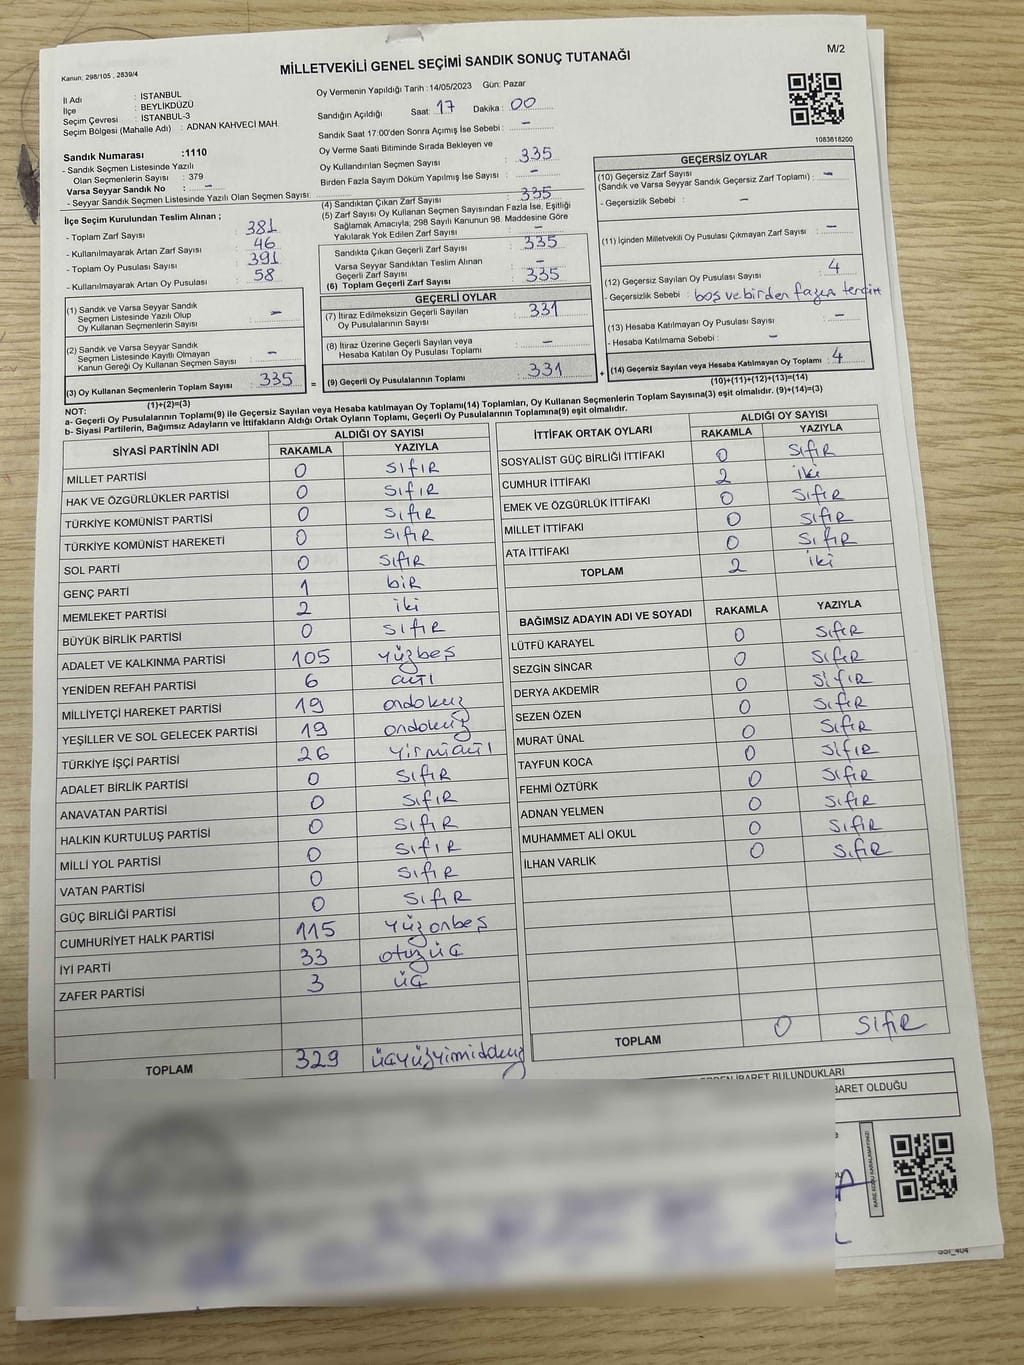 Kanun: 298/105 , 2839/4
MİLLETVEKİLİ GENEL SEÇİMİ SANDIK SONUÇ TUTANAĞI
M/2
İl Adı : İSTANBUL
İlçe : BEYLİKDÜZÜ
Seçim Çevresi : İSTANBUL-3
Seçim Bölgesi (Mahalle Adı) : ADNAN KAHVECİ MAH.
Sandık Numarası :1110
- Sandık Seçmen Listesinde Yazılı
Olan Seçmenlerin Sayısı : 379
Varsa Seyyar Sandık No : –
- Seyyar Sandık Seçmen Listesinde Yazılı Olan Seçmen Sayısı:
İlçe Seçim Kurulundan Teslim Alınan ;
- Toplam Zarf Sayısı : 381
- Kullanılmayarak Artan Zarf Sayısı : 46
- Toplam Oy Pusulası Sayısı : 391
- Kullanılmayarak Artan Oy Pusulası : 58
(1) Sandık ve Varsa Seyyar Sandık
Seçmen Listesinde Yazılı Olup
Oy Kullanan Seçmenlerin Sayısı : –
(2) Sandık ve Varsa Seyyar Sandık
Seçmen Listesinde Kayıtlı Olmayan
Kanun Gereği Oy Kullanan Seçmen Sayısı : –
(3) Oy Kullanan Seçmenlerin Toplam Sayısı : 335
(1)+(2)=(3)
Oy Vermenin Yapıldığı Tarih : 14/05/2023 Gün: Pazar
Sandığın Açıldığı Saat: 17 Dakika : 00
Sandık Saat 17:00'den Sonra Açımış İse Sebebi : –
Oy Verme Saati Bitiminde Sırada Bekleyen ve
Oy Kullandırılan Seçmen Sayısı : 335
Birden Fazla Sayım Döküm Yapılmış İse Sayısı : –
(4) Sandıktan Çıkan Zarf Sayısı : 335
(5) Zarf Sayısı Oy Kullanan Seçmen Sayısından Fazla İse, Eşitliği
Sağlamak Amacıyla, 298 Sayılı Kanunun 98. Maddesine Göre
Yakılarak Yok Edilen Zarf Sayısı : –
Sandıkta Çıkan Geçerli Zarf Sayısı : 335
Varsa Seyyar Sandıktan Teslim Alınan
Geçerli Zarf Sayısı : –
(6) Toplam Geçerli Zarf Sayısı : 335
GEÇERLİ OYLAR
(7) İtiraz Edilmeksizin Geçerli Sayılan
Oy Pusulalarının Sayısı : 331
(8) İtiraz Üzerine Geçerli Sayılan veya
Hesaba Katılan Oy Pusulası Toplamı : –
= (9) Geçerli Oy Pusulalarının Toplamı : 331 +
1083818200
GEÇERSİZ OYLAR
(10) Geçersiz Zarf Sayısı
(Sandık ve Varsa Seyyar Sandık Geçersiz Zarf Toplamı) : –
- Geçersizlik Sebebi : –
(11) İçinden Milletvekili Oy Pusulası Çıkmayan Zarf Sayısı : –
(12) Geçersiz Sayılan Oy Pusulası Sayısı : 4
- Geçersizlik Sebebi : boş ve birden fazla tercih
(13) Hesaba Katılmayan Oy Pusulası Sayısı : –
- Hesaba Katılmama Sebebi : –
(14) Geçersiz Sayılan veya Hesaba Katılmayan Oy Toplamı : 4
(10)+(11)+(12)+(13)=(14)
NOT:
a- Geçerli Oy Pusulalarının Toplamı(9) ile Geçersiz Sayılan veya Hesaba katılmayan Oy Toplamı(14) Toplamları, Oy Kullanan Seçmenlerin Toplam Sayısına(3) eşit olmalıdır. (9)+(14)=(3)
b- Siyasi Partilerin, Bağımsız Adayların ve İttifakların Aldığı Ortak Oyların Toplamı, Geçerli Oy Pusulalarının Toplamına(9) eşit olmalıdır.
SİYASİ PARTİNİN ADI ALDIĞI OY SAYISI
RAKAMLA YAZIYLA
MİLLET PARTİSİ 0 sıfır
HAK VE ÖZGÜRLÜKLER PARTİSİ 0 sıfır
TÜRKİYE KOMÜNİST PARTİSİ 0 sıfır
TÜRKİYE KOMÜNİST HAREKETİ 0 sıfır
SOL PARTİ 0 sıfır
GENÇ PARTİ 1 bir
MEMLEKET PARTİSİ 2 iki
BÜYÜK BİRLİK PARTİSİ 0 sıfır
ADALET VE KALKINMA PARTİSİ 105 yüzbeş
YENİDEN REFAH PARTİSİ 6 altı
MİLLİYETÇİ HAREKET PARTİSİ 19 ondokuz
YEŞİLLER VE SOL GELECEK PARTİSİ 19 ondokuz
TÜRKİYE İŞÇİ PARTİSİ 26 yirmialtı
ADALET BİRLİK PARTİSİ 0 sıfır
ANAVATAN PARTİSİ 0 sıfır
HALKIN KURTULUŞ PARTİSİ 0 sıfır
MİLLİ YOL PARTİSİ 0 sıfır
VATAN PARTİSİ 0 sıfır
GÜÇ BİRLİĞİ PARTİSİ 0 sıfır
CUMHURİYET HALK PARTİSİ 115 yüzonbeş
İYİ PARTİ 33 otuzüç
ZAFER PARTİSİ 3 üç
TOPLAM 329 üçyüzyirmidokuz
İTTİFAK ORTAK OYLARI ALDIĞI OY SAYISI
RAKAMLA YAZIYLA
SOSYALİST GÜÇ BİRLİĞİ İTTİFAKI 0 sıfır
CUMHUR İTTİFAKI 2 iki
EMEK VE ÖZGÜRLÜK İTTİFAKI 0 sıfır
MİLLET İTTİFAKI 0 sıfır
ATA İTTİFAKI 0 sıfır
TOPLAM 2 iki
BAĞIMSIZ ADAYIN ADI VE SOYADI RAKAMLA YAZIYLA
LÜTFÜ KARAYEL 0 sıfır
SEZGİN SİNCAR 0 sıfır
DERYA AKDEMİR 0 sıfır
SEZEN ÖZEN 0 sıfır
MURAT ÜNAL 0 sıfır
TAYFUN KOCA 0 sıfır
FEHMİ ÖZTÜRK 0 sıfır
ADNAN YELMEN 0 sıfır
MUHAMMET ALİ OKUL 0 sıfır
İLHAN VARLIK 0 sıfır
TOPLAM 0 sıfır
İBARET BULUNDUKLARI
BARET OLDUĞU